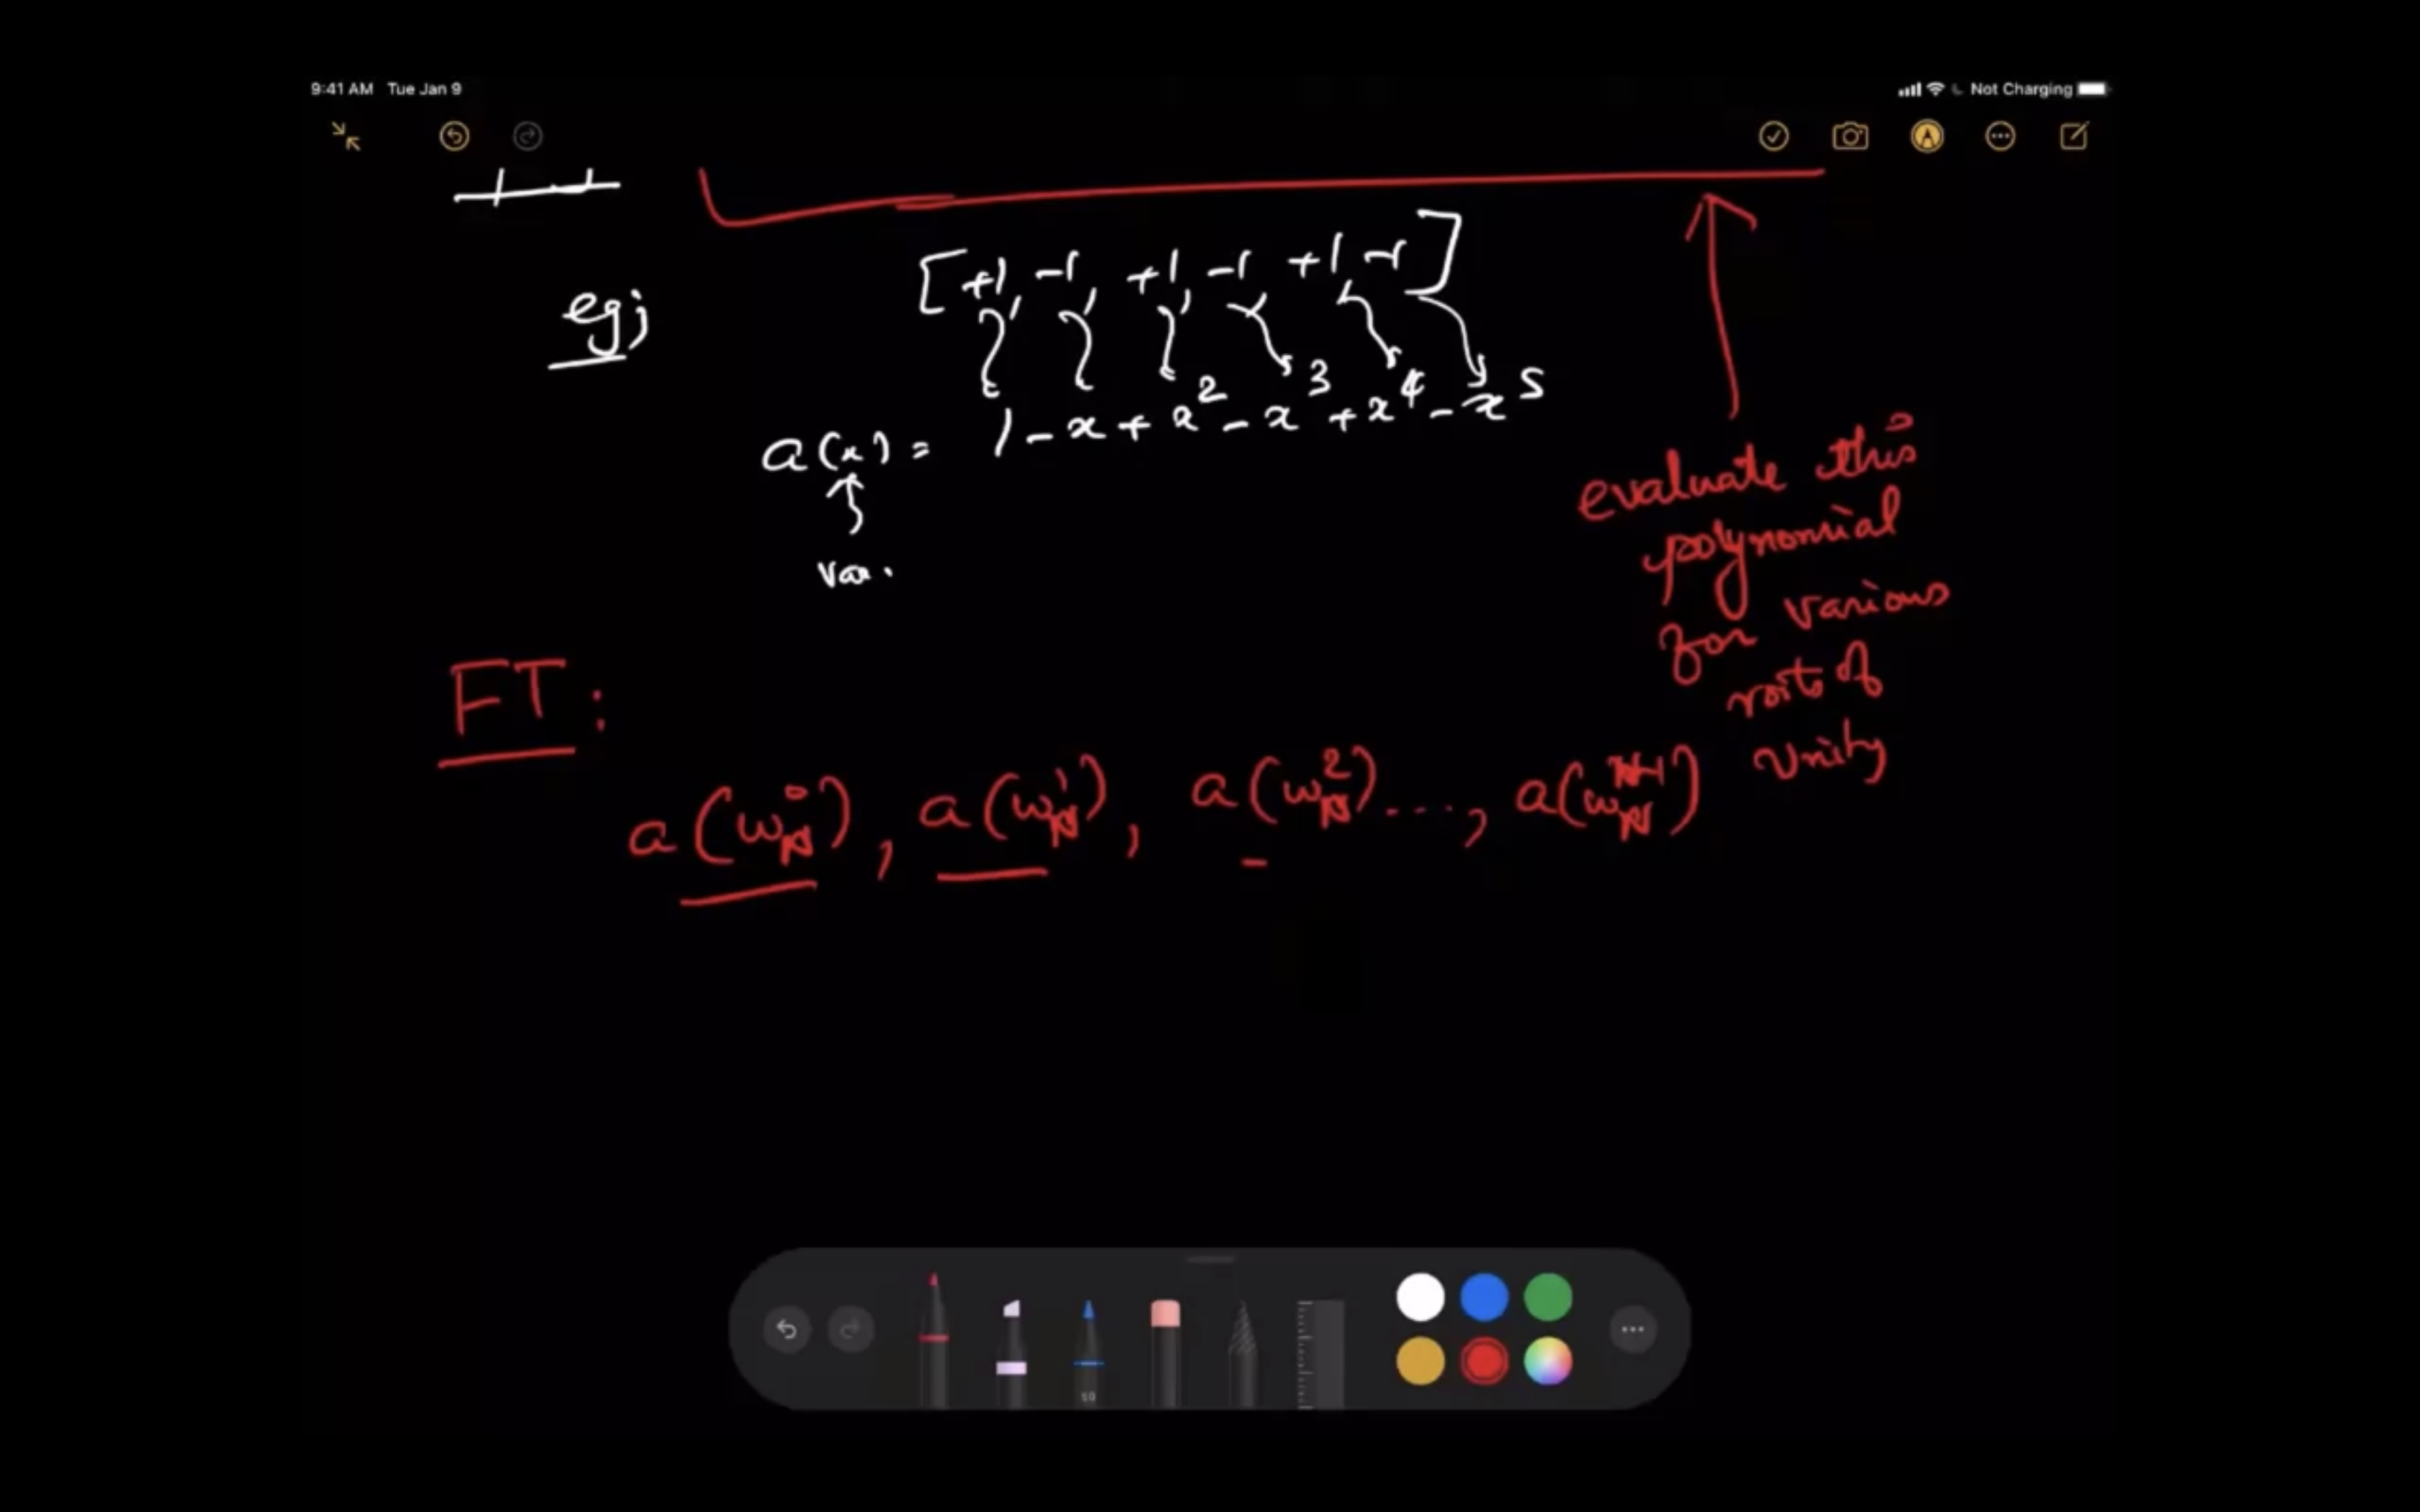 9:41 AM Tue Jan 9
Not Charging
eg;
[+1, -1, +1, -1, +1, -1]
a(x) = 1 - x + x² - x³ + x⁴ - x⁵
var.
evaluate this
polynomial
for various
roots of
unity
FT:
a(ω_N^0), a(ω_N^1), a(ω_N^2)..., a(ω_N^{N-1})
50